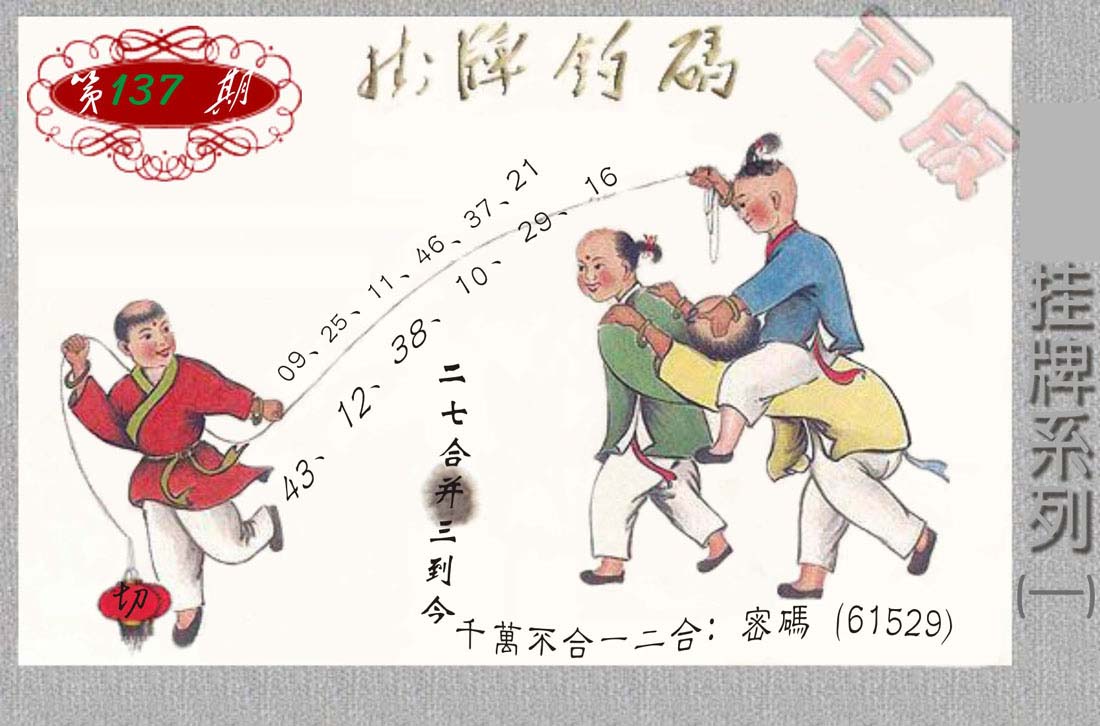 第137期
掛牌釣碼
正版
09、25、11、46、37、21
43、12、38、10、29、16
二七合并三到今
千萬不合一二合：密碼（61529）
切
挂牌系列(一)